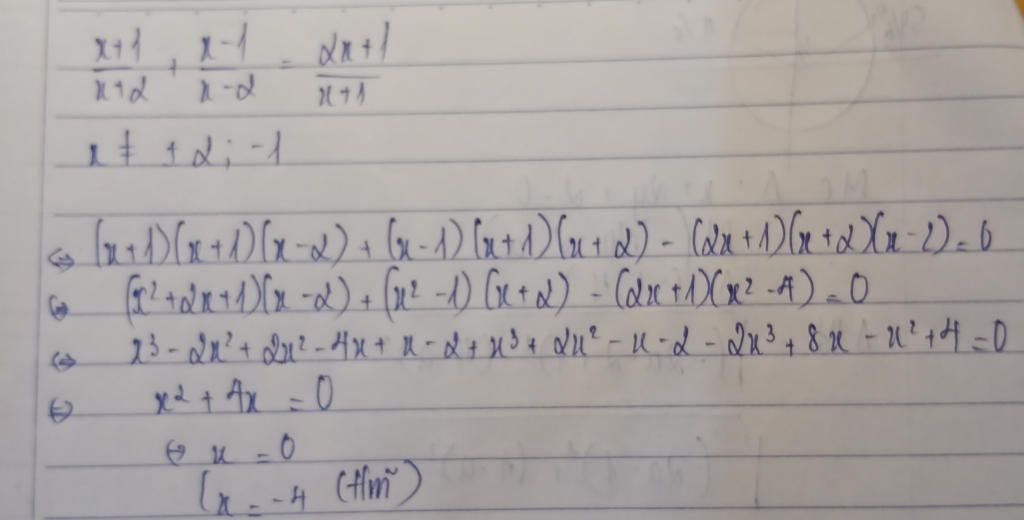 \frac{x+1}{x+2} + \frac{x-1}{x-2} = \frac{2x+1}{x+1}
x ≠ ±2; -1
⇔ (x+1)(x+1)(x-2) + (x-1)(x+1)(x+2) - (2x+1)(x+2)(x-2) = 0
⇔ (x²+2x+1)(x-2) + (x²-1)(x+2) - (2x+1)(x²-4) = 0
⇔ x³ - 2x² + 2x² - 4x + x - 2 + x³ + 2x² - x - 2 - 2x³ + 8x - x² + 4 = 0
⇔ x² + 4x = 0
⇔ [ x = 0
x = -4 (t/m)